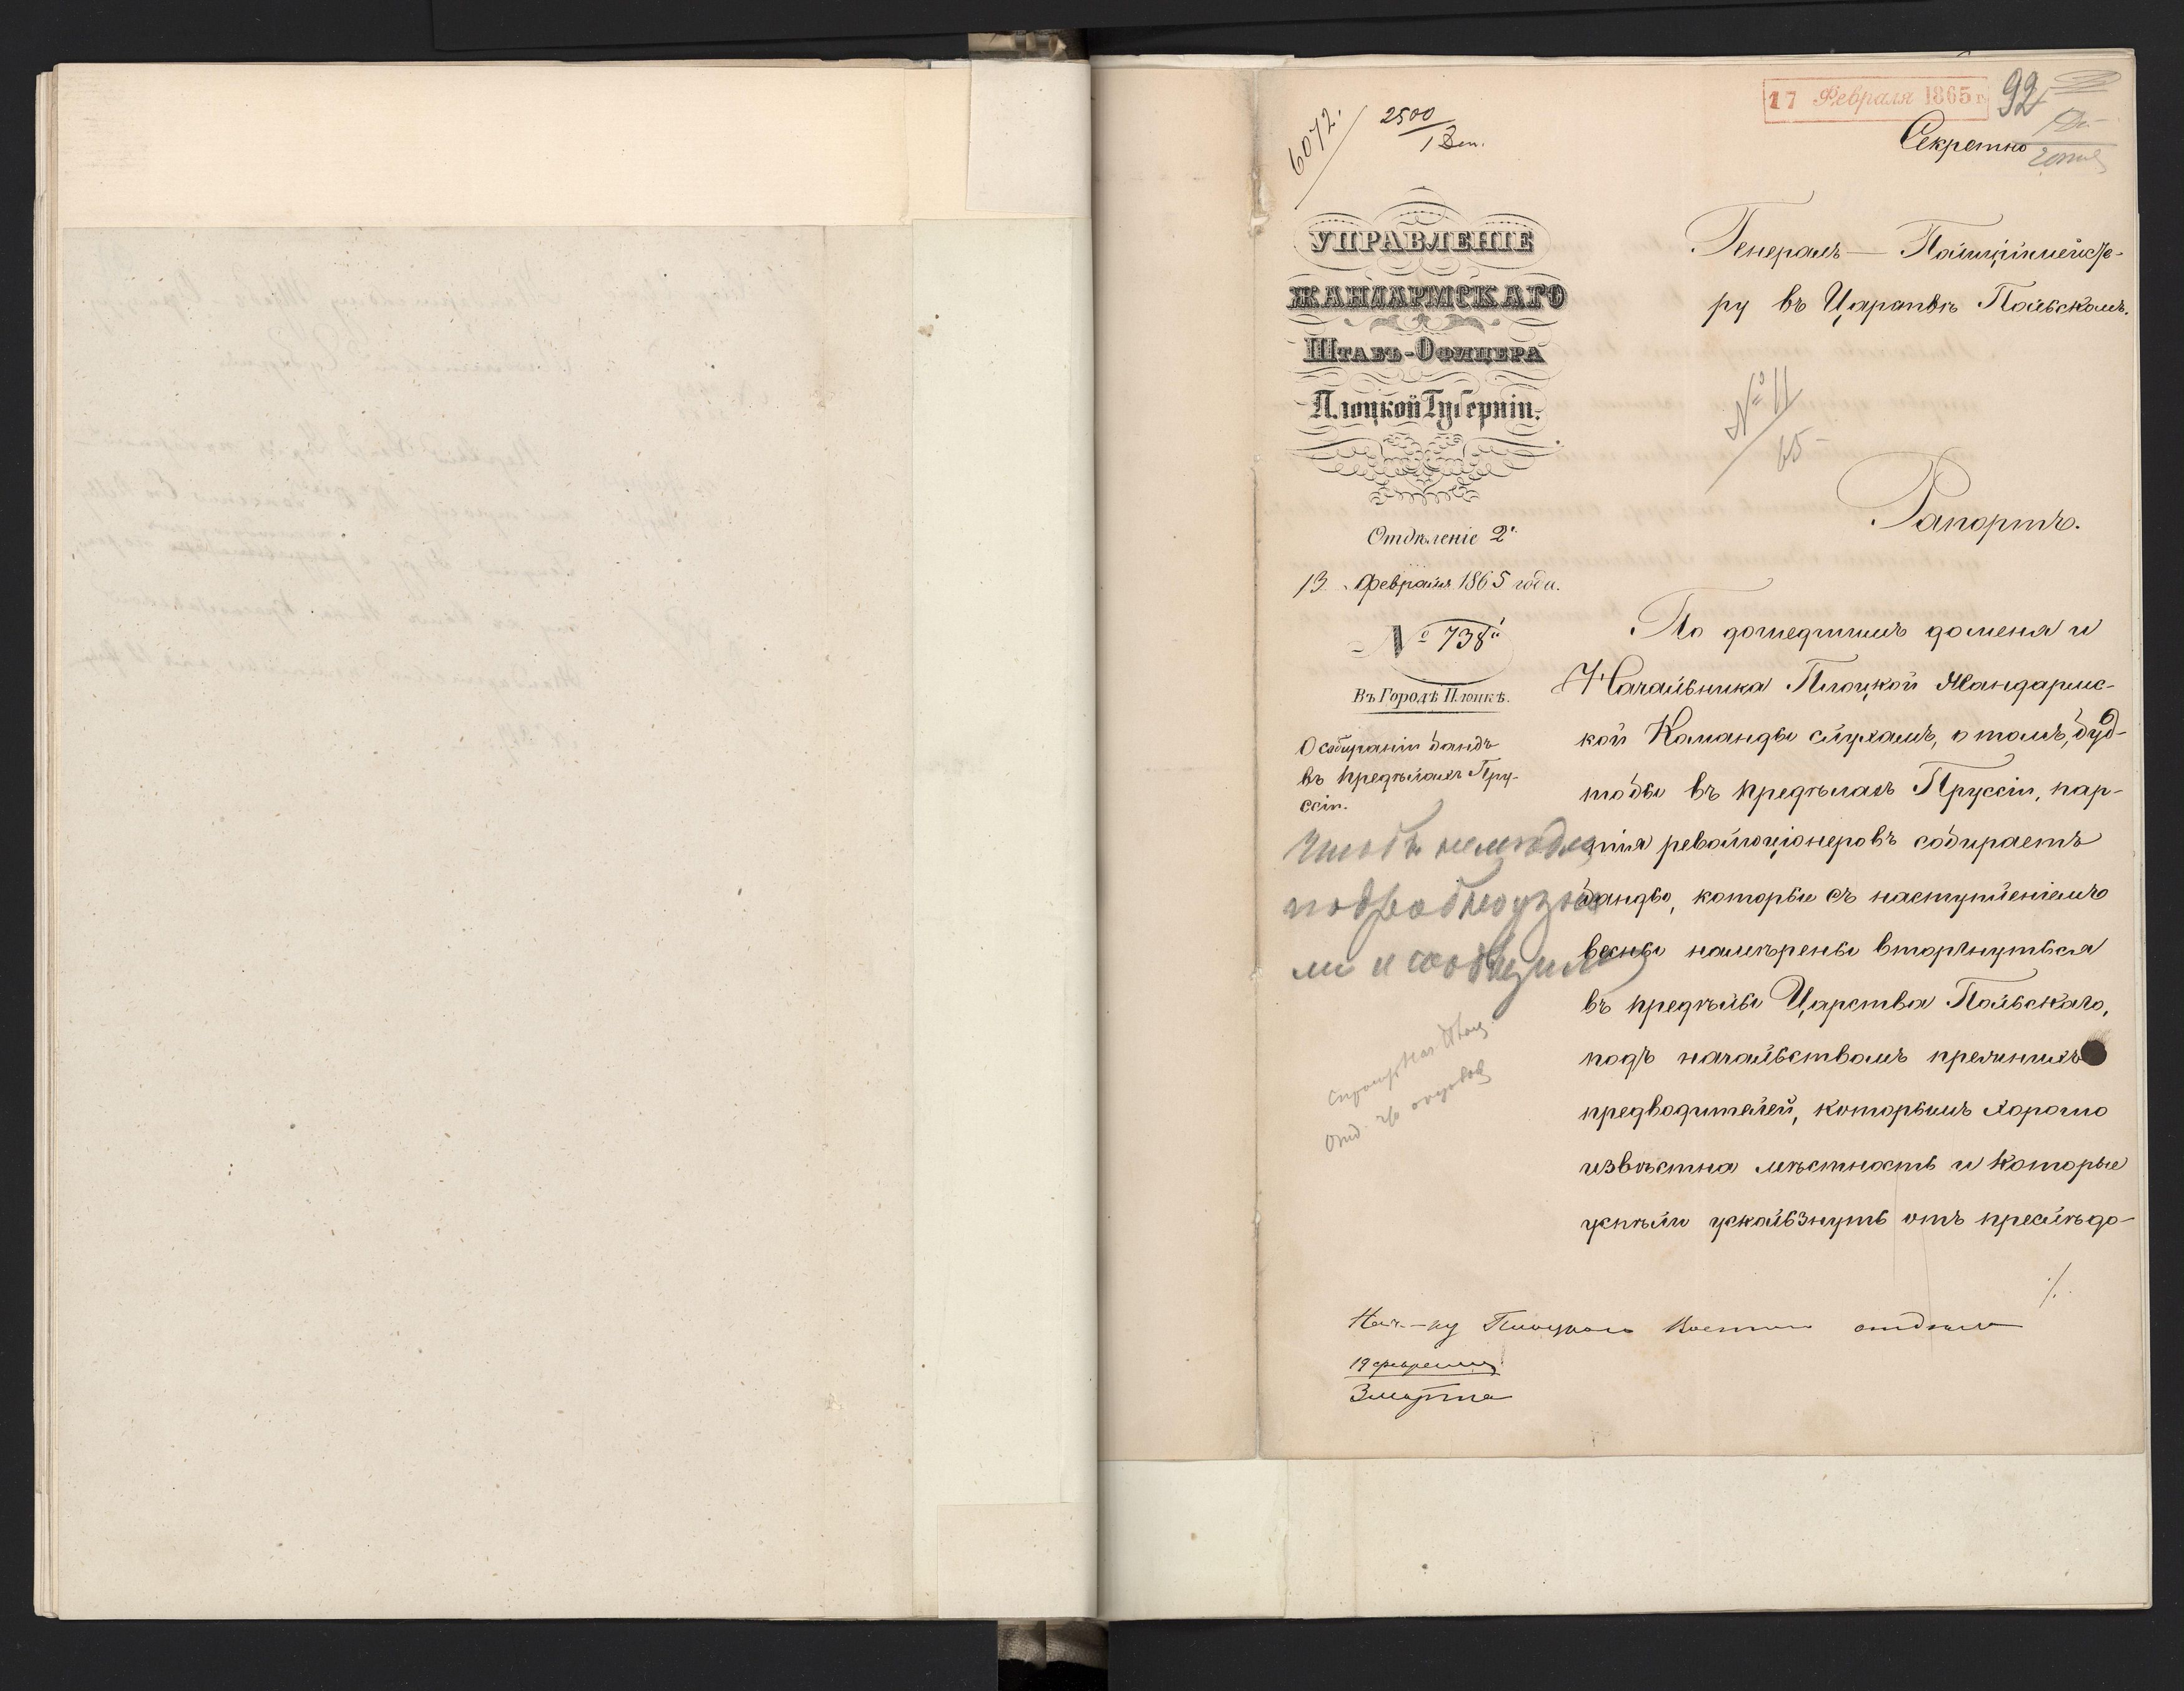 17 Февраля 1865 г.
92
Секретно
6072.
2500
УПРАВЛЕНІЕ
ЖАНДАРМСКАГО
ШТАБЪ-ОФИЦЕРА
Плоцкой Губерніи.
Отдѣленіе 2.
13 Февраля 1865 года.
№ 738
Въ Городѣ Плоцкѣ.
О собираніи бандъ
въ предѣлахъ Пру-
ссіи.
Генералъ-Полиціймейсте-
ру въ Царствѣ Польскомъ.
№ 11
65
Рапортъ.
По дошедшимъ до меня и
Начальника Плоцкой Жандармс-
кой Команды слухамъ, о томъ, буд-
тобы въ предѣлахъ Пруссіи, пар-
тія революціонеровъ собираетъ
банды, которые съ наступленіемъ
весны намѣрены вторгнуться
въ предѣлы Царства Польскаго,
подъ начальствомъ прежнихъ
предводителей, которымъ хорошо
извѣстна мѣстность и которые
успѣли ускользнуть отъ преслѣдо-
./.
Нач-ку Плоцкаго Военнаго отдѣла
19 февраля
3 марта